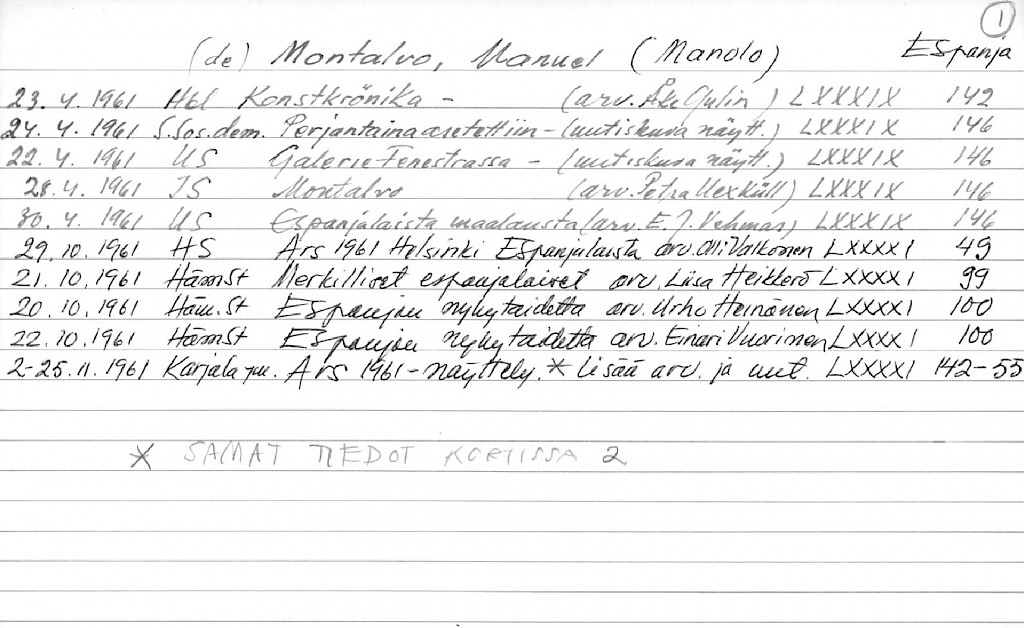 1
(de) Montalvo, Manuel (Manolo) Espanja
23.4.1961 Hbl Konstkrönika - (arv. Åke Gylin) LXXXIX 142
24.4.1961 S.Sos.dem. Perjantaina avetettiin - (uutiskuva näytt.) LXXXIX 146
22.4.1961 US Galerie Fenestrassa - (uutiskuva näytt.) LXXXIX 146
28.4.1961 IS Montalvo (arv. Petra Uexküll) LXXXIX 146
30.4.1961 US Espanjalaista maalausta (arv. E.J. Vehmas) LXXXIX 146
29.10.1961 HS Ars 1961 Helsinki Espanjalaista arv. Olli Valkonen LXXXXI 49
21.10.1961 HämSt Merkilliset espanjalaiset arv. Liisa Heikkerö LXXXXI 99
20.10.1961 Häm.St Espanjan nykytaidetta arv. Urho Heinänen LXXXXI 100
22.10.1961 HämSt Espanjan nykytaidetta arv. Einari Vuorinen LXXXXI 100
2-25.11.1961 Karjala ym. Ars 1961-näyttely. * Lisää arv. ja uut. LXXXXI 142-55
* SAMAT TIEDOT KORTISSA 2